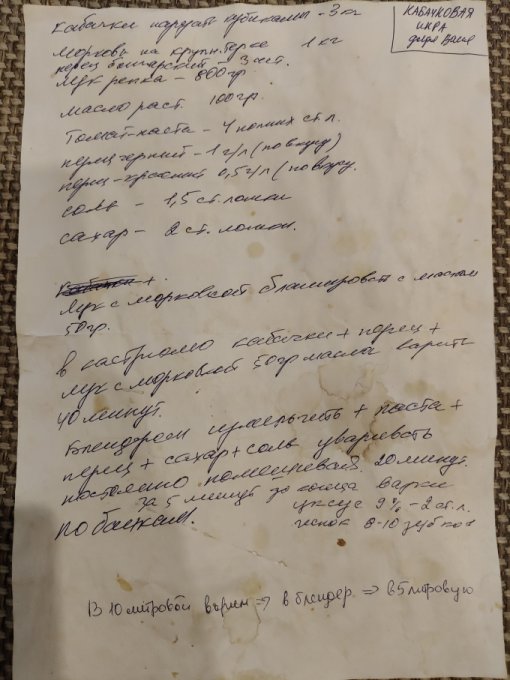 КАБАЧКОВАЯ
ИКРА
дядя Ваня
Кабачки нарезать кубиками - 3 кг
Морковь на крупн. терке 1 кг
перец болгарский - 3 шт.
Лук репка - 800 гр.
масло раст. 100 гр.
Томат-паста - 4 полных ст. л.
перец черный - 1 ч/л (по вкусу)
перец красный 0,5 ч/л (по вкусу.
соль - 1,5 ст. ложки
сахар - 2 ст. ложки.
Лук с морковкой бланшировать с маслом
50 гр.
В кастрюлю кабачки + перец +
лук с морковкой 50 гр масла варить
40 минут.
Блендером измельчить + паста +
перец + сахар + соль уваривать
постоянно помешивая. 20 минут.
за 5 минут до конца варки
уксус 9% - 2 ст. л.
по банкам.
чеснок 8-10 зубков
В 10 литровой варим => в блендер. => в 5 литровую